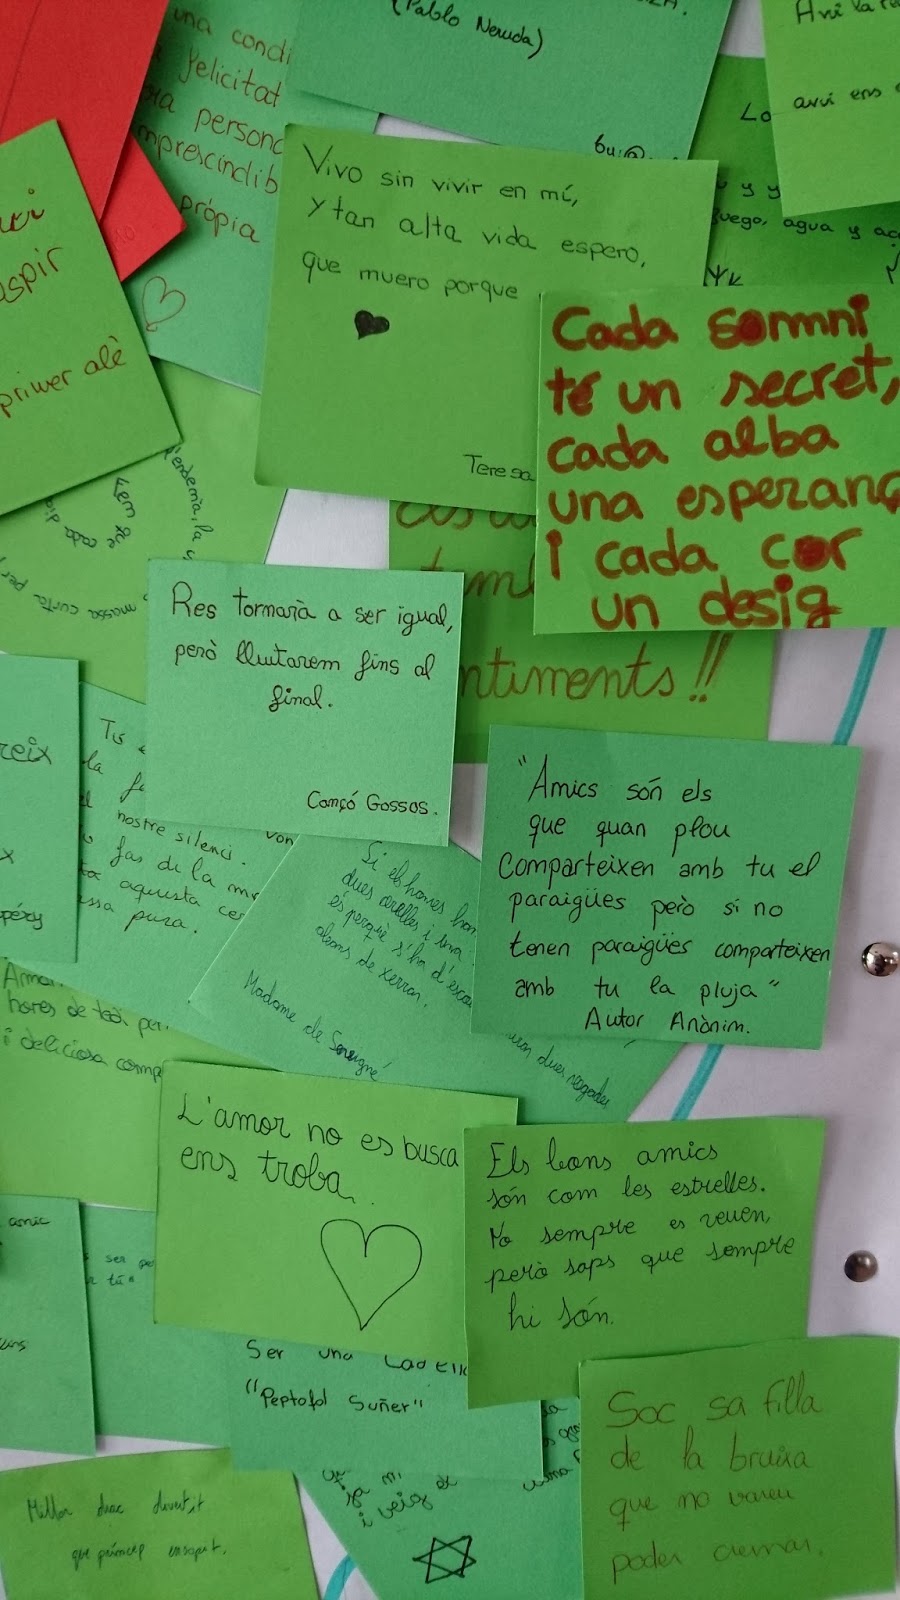 (Pablo Neruda)
una condi
felicitat
persona
imprescindib
pròpia
Avui la
avui ens
Lo
y y
fuego, agua y
Vivo sin vivir en mí,
y tan alta vida espero,
que muero porque
Teresa
primer alè
Cada somni
té un secret,
cada alba
una esperanç
i cada cor
un desig
Fem que cada dia
massa curta per
ntiments!!
Res tornarà a ser igual,
però lluitarem fins al
final.
Cançó Gossos.
reix
x
Tu
la fe
el nostre silenci.
fas de la
aquesta
pura.
Si els homes han
dues orelles i una
és perquè s'ha d'escol
abans de xerrar.
Madame de Sevigné
dues vegades
"Amics són els
que quan plou
comparteixen amb tu el
paraigües però si no
tenen paraigües comparteixen
amb tu la pluja"
Autor Anònim.
Amor
hores de tot per
i deliciosa comp
L'amor no es busca
ens troba
Els bons amics
són com les estrelles.
No sempre es veuen,
però saps que sempre
hi són.
amic
ser
tú"
Ser una
"Peptofol Suñer"
i veig
una
Soc sa filla
de la bruixa
que no vareu
poder cremar.
Millor drac divertit
que príncep ensopit.